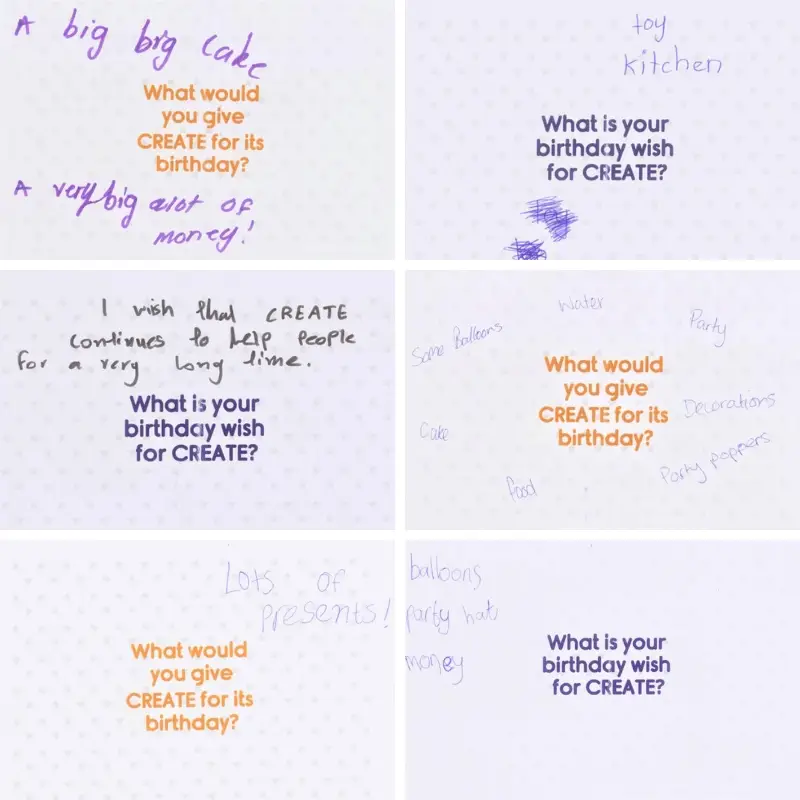 A big big cake
What would
you give
CREATE for its
birthday?
A very big alot of
money!
toy
kitchen
What is your
birthday wish
for CREATE?
I wish that CREATE
continues to help people
for a very long time.
What is your
birthday wish
for CREATE?
Water
Some Balloons
Party
What would
you give
CREATE for its
birthday?
Decorations
Cake
Party poppers
food
Lots of
presents!
What would
you give
CREATE for its
birthday?
balloons
party hats
money
What is your
birthday wish
for CREATE?